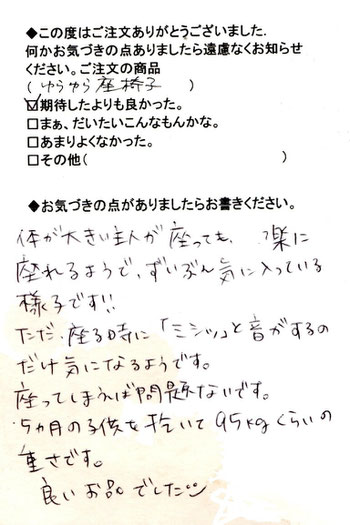 ◆この度はご注文ありがとうございました.
何かお気づきの点ありましたら遠慮なくお知らせ
ください。ご注文の商品
(ゆらゆら座椅子)
☑期待したよりも良かった。
□まぁ、だいたいこんなもんかな。
□あまりよくなかった。
□その他( )
◆お気づきの点がありましたらお書きください。
体が大きい主人が座っても、楽に
座れるようで、ずいぶん気に入っている
様子です!!
ただ、座る時に「ミシッ」と音がするの
だけ気になるようです。
座ってしまえば問題ないです。
5ヵ月の子供を抱いて95kgくらいの
重さです。
良いお品でした